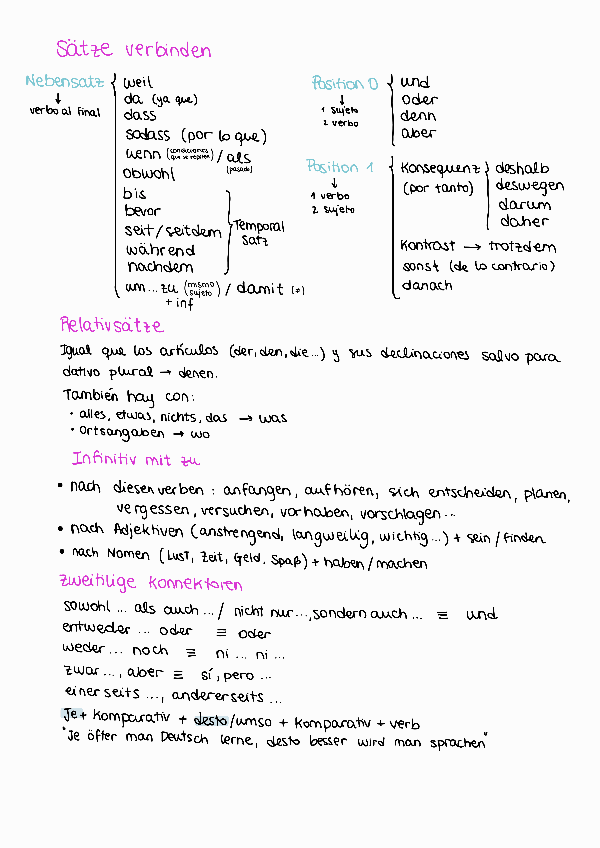 Sätze verbinden
Nebensatz
↓
verbo al final
weil
da (ya que)
dass
sodass (por lo que)
wenn (condiciones que se repiten) / als (pasado)
obwohl
bis
bevor
seit / seitdem
während
nachdem
Temporal
Satz
um ... zu (mismo sujeto) / damit (≠)
+ inf
Position 0
↓
1 sujeto
2 verbo
und
oder
denn
aber
Position 1
↓
1 verbo
2 sujeto
Konsequenz
(por tanto)
deshalb
deswegen
darum
daher
Kontrast → trotzdem
sonst (de lo contrario)
danach
Relativsätze
Igual que los artículos (der, den, die...) y sus declinaciones salvo para
dativo plural → denen.
También hay con:
• alles, etwas, nichts, das → was
• Ortsangaben → wo
Infinitiv mit zu
• nach diesen verben : anfangen, aufhören, sich entscheiden, planen,
vergessen, versuchen, vorhaben, vorschlagen...
• nach Adjektiven (anstrengend, langweilig, wichtig...) + sein / finden
• nach Nomen (Lust, Zeit, Geld, Spaß) + haben / machen
Zweitilige konnektoren
sowohl ... als auch ... / nicht nur ..., sondern auch ... ≡ und
entweder ... oder ≡ oder
weder ... noch ≡ ni ... ni ...
zwar ..., aber ≡ sí, pero ...
einerseits ..., andererseits ...
Je + Komparativ + desto/umso + Komparativ + verb
"Je öfter man Deutsch lerne, desto besser wird man sprachen"